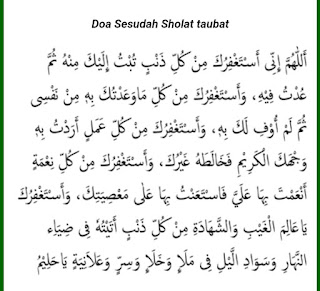 Doa Sesudah Sholat taubat
أَللّٰهُمَّ إِنِّى أَسْتَغْفِرُكَ مِنْ كُلِّ ذَنْبٍ تُبْتُ إِلَيْكَ مِنْهُ ثُمَّ
عُدْتُ فِيْهِ، وَأَسْتَغْفِرُكَ مِنْ كُلِّ مَاوَعَدْتُكَ بِهِ مِنْ نَفْسِى
ثُمَّ لَمْ أُوْفِ لَكَ بِهِ، وَأَسْتَغْفِرُكَ مِنْ كُلِّ عَمَلٍ أَرَدْتُ بِهِ
وَجْهَكَ الْكَرِيْمَ فَخَالَطَهُ غَيْرُكَ، وَأَسْتَغْفِرُكَ مِنْ كُلِّ نِعْمَةٍ
أَنْعَمْتَ بِهَا عَلَيَّ فَاسْتَعَنْتُ بِهَا عَلٰى مَعْصِيَتِكَ، وَأَسْتَغْفِرُكَ
يَاعَالِمَ الْغَيْبِ وَالشَّهَادَةِ مِنْ كُلِّ ذَنْبٍ أَتَيْتُهُ فِى ضِيَاءِ
النَّهَارِ وَسَوَادِ الَّيْلِ فِى مَلَاٍ وَخَلَاٍ وَسِرٍّ وَعَلَانِيَةٍ يَاحَلِيْمُ